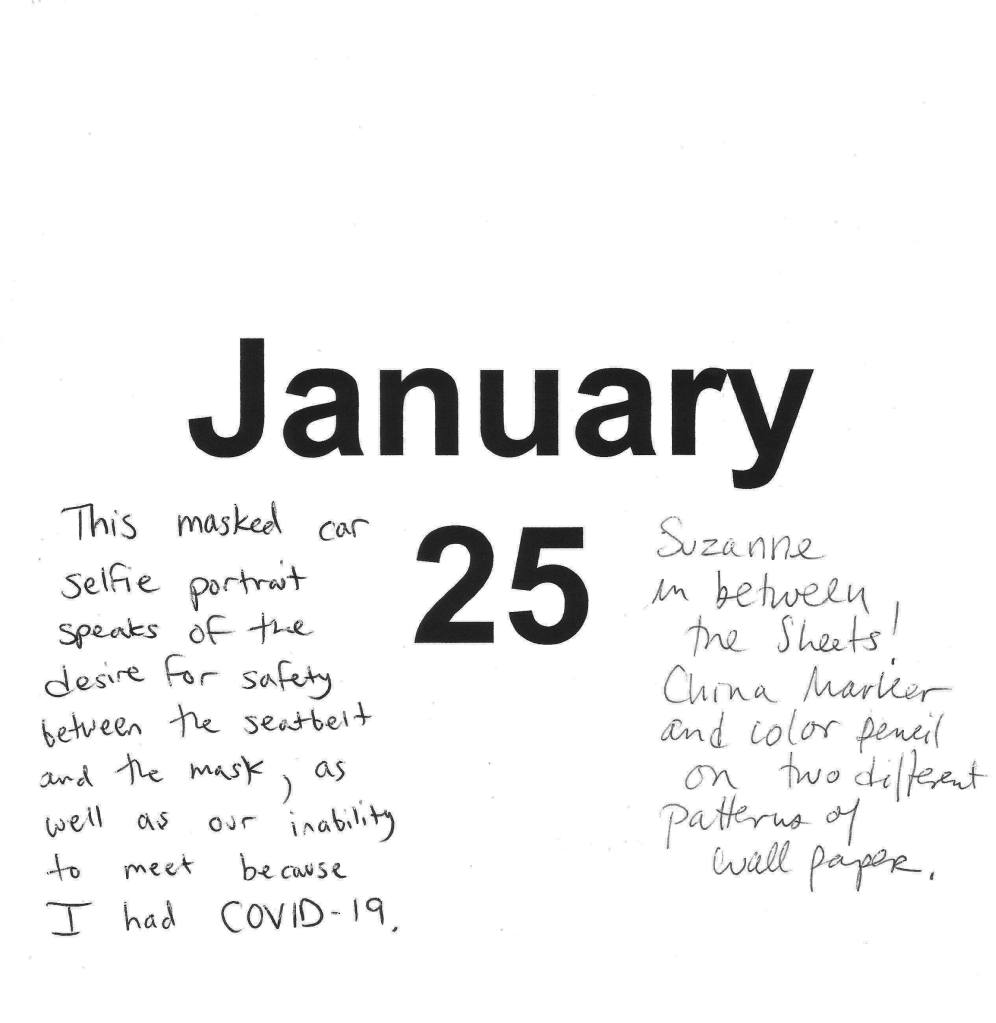 January
25
This masked car
selfie portrait
speaks of the
desire for safety
between the seatbelt
and the mask, as
well as our inability
to meet because
I had COVID-19.
Suzanne
in between,
the Sheets!
China Marker
and color pencil
on two different
patterns of
wall paper.